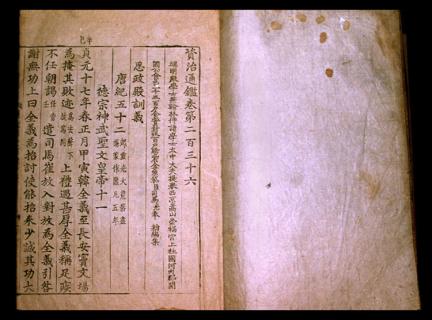 資治通鑑卷第二百三十六
端明殿學士兼翰林侍讀學士太中大夫提舉西京嵩山崇福宮上柱國河內郡開
國公食邑
司馬光奉 勅編集
思政殿訓義
唐紀五十二
凡五年
德宗神武聖文皇帝十一
辛巳
貞元十七年春正月甲寅韓全義至長安竇文場
為掩其敗迹 上禮遇甚厚全義稱足疾
不任朝謁 遣司馬崔放入對放為全義引咎
謝無功上曰全義為招討使能招來少誠其功大